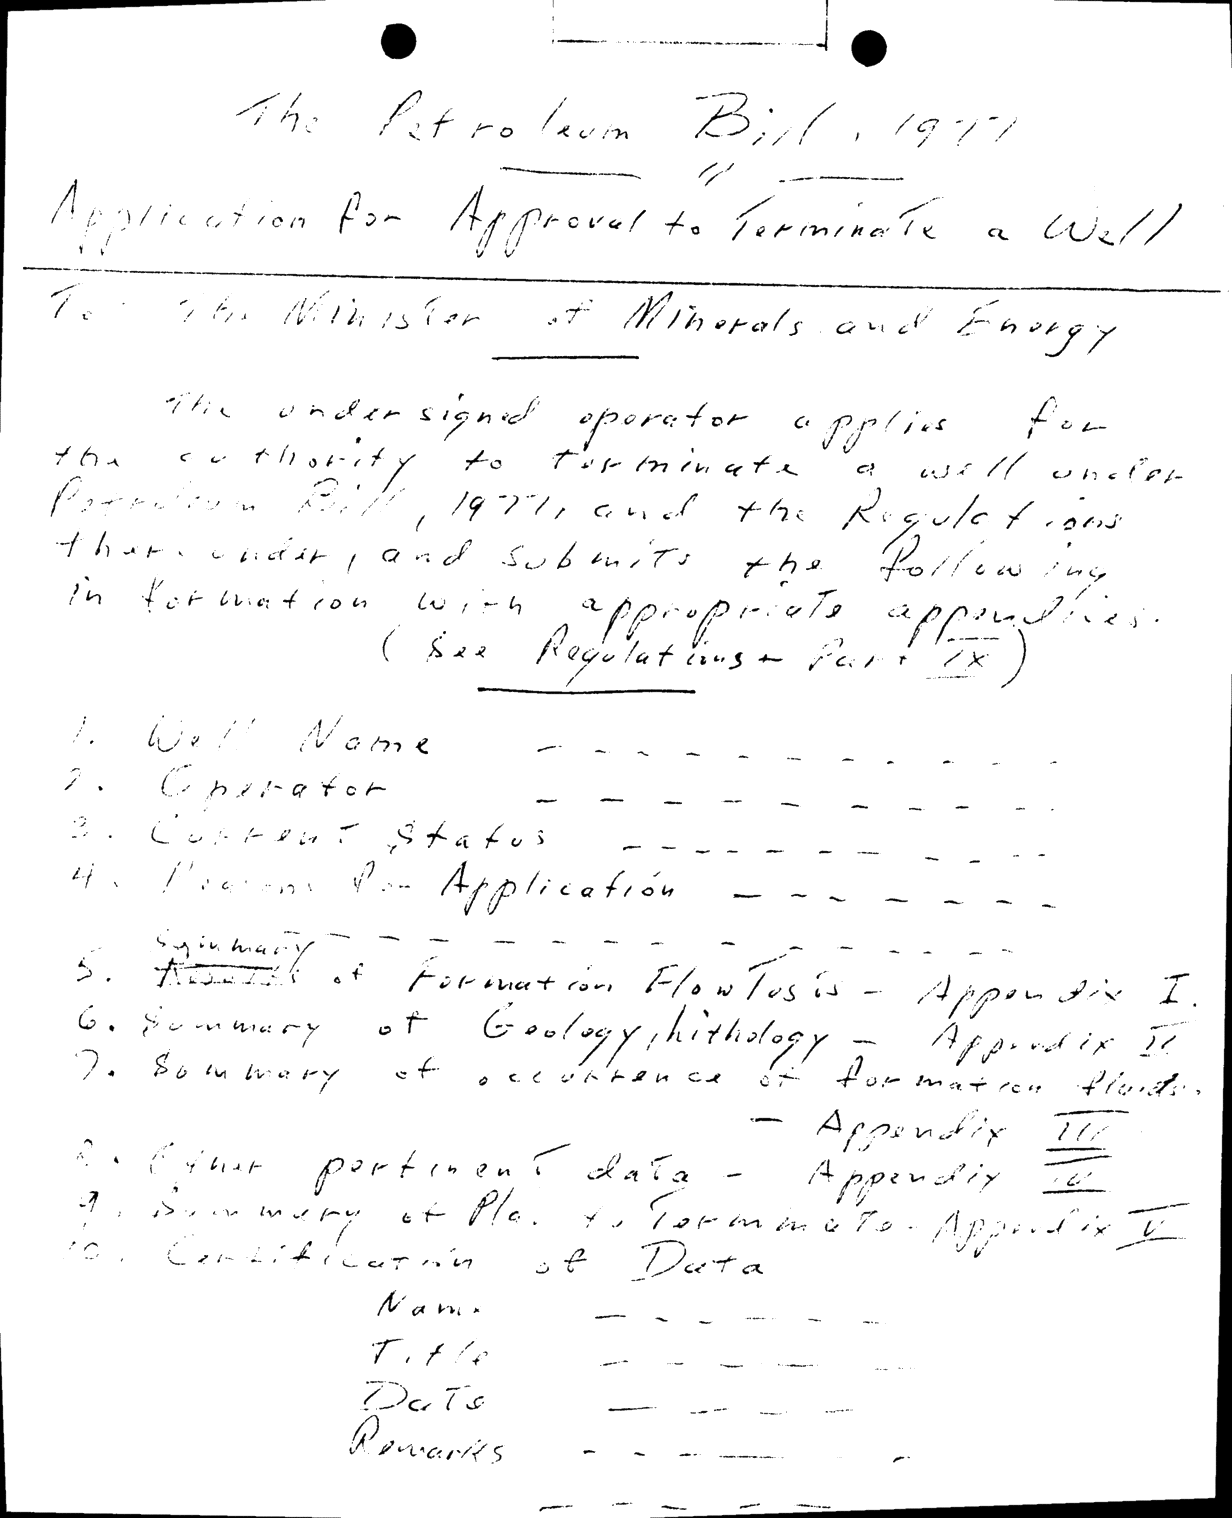 The Petroleum Bill, 1977
Application for Approval to Terminate a Well
To The Minister of Minerals and Energy
The undersigned operator applies for
the authority to terminate a well under
Petroleum Bill, 1977, and the Regulations
thereunder, and submits the following
information with appropriate appendices.
(See Regulations - Part IX)
1. Well Name - - - - - - - - - - -
2. Operator - - - - - - - - - - -
3. Current Status - - - - - - - - - -
4. Reasons for Application - - - - - - -
- - - - - - - - - - - - - -
Summary
5. of Formation Flow Tests - Appendix I.
6. Summary of Geology, Lithology - Appendix II
7. Summary of occurrence of formation fluids.
- Appendix III
8. Other pertinent data - Appendix IV
9. Summary of Plan to Terminate - Appendix V
10. Certification of Data
Name - - - - - -
Title - - - - - -
Date - - - - -
Remarks - - - - -
- - - - -